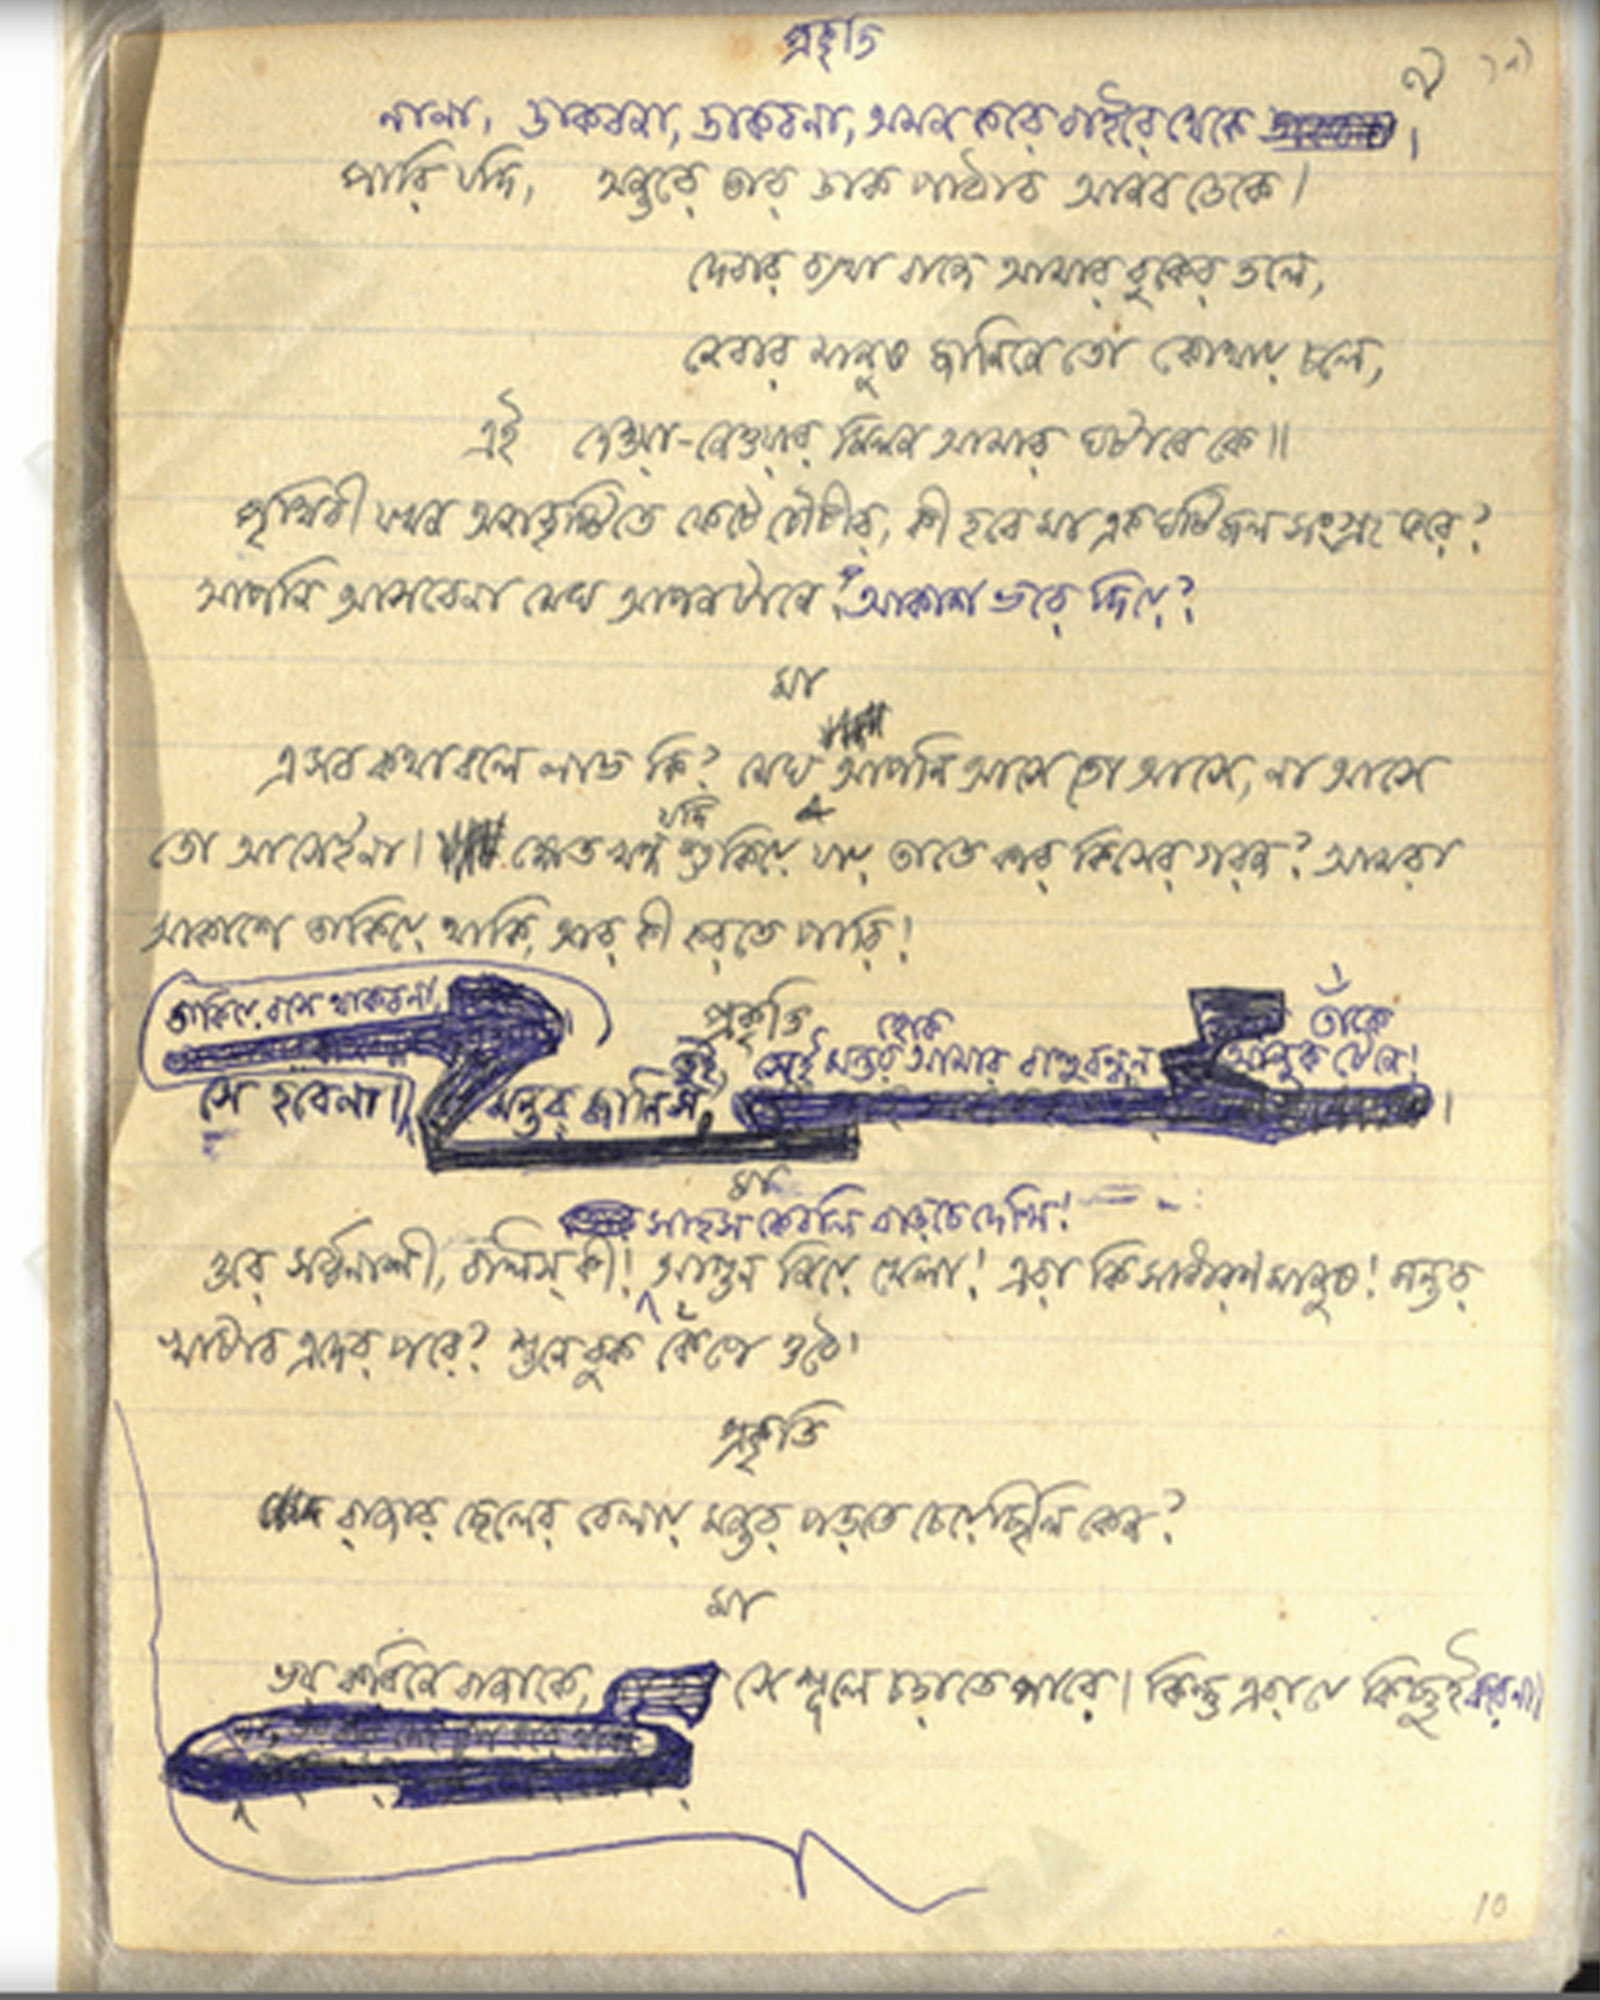 প্রকৃতি
না না, ডাকব না, ডাকব না, অমন করে বাইরে থেকে।
পারি যদি, অন্তরে তার ডাক পাঠাব আনব ডেকে।
দেবার ব্যথা বাজে আমার বুকের তলে,
নেবার মানুষ জানিনে তো কোথায় চলে,
এই দেওয়া-নেওয়ার মিলন আমার ঘটাবে কে॥
পৃথিবী যখন অনাবৃষ্টিতে ফেটে চৌচীর, কী হবে মা এক ঘটি জল সংগ্রহ করে?
আপনি আসবেনা মেঘ আপন টানে আকাশ ভরে দিয়ে?
মা
এসব কথা বলে লাভ কি? মেঘ আপনি আসে তো আসে, না আসে
যদি
তো আসেই না। ক্ষেত খন্দ শুকিয়ে যায় তাতে কার কিসের গরজ? আমরা
আকাশে তাকিয়ে থাকি, আর কী করতে পারি!
তাকিয়ে বসে থাকবনা
প্রকৃতি
থেকে
তাঁকে
তুই সেই মন্তর আমার বাহুবন্ধন আসুক টেনে!
সে হবেনা। মন্তর জানিস,
মা
সাহস কেবলি বাড়চে দেখি!
ওরে সর্ব্বনাশী, বলিস্ কী! আগুন নিয়ে খেলা! এরা কি সাধারণ মানুষ! মন্তর
খাটাব এদের পরে? শুনে বুক কেঁপে ওঠে।
প্রকৃতি
রাজার ছেলের বেলায় মন্তর পড়তে চেয়েছিলি কেন?
মা
ভয় করিনে রাজাকে, সে শূলে চড়াতে পারে। কিন্তু এরা যে কিচ্ছুই করেনা।
10